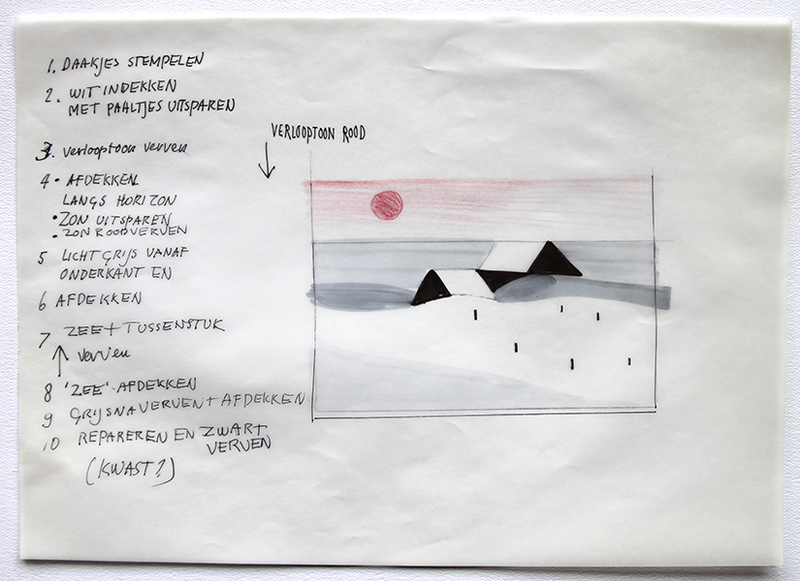 1. DAAKJES STEMPELEN
2. WIT INDEKKEN
MET PAALTJES UITSPAREN
3. verlooptoon verven
VERLOOPTOON ROOD
4 • AFDEKKEN
LANGS HORIZON
• ZON UITSPAREN
• ZON ROOD VERVEN
5 LICHT GRIJS VANAF
ONDERKANT EN
6 AFDEKKEN
7 ZEE + TUSSENSTUK
verven
8 'ZEE' AFDEKKEN
9 GRIJS NAVERVEN + AFDEKKEN
10 REPAREREN EN ZWART
VERVEN
(KWAST?)